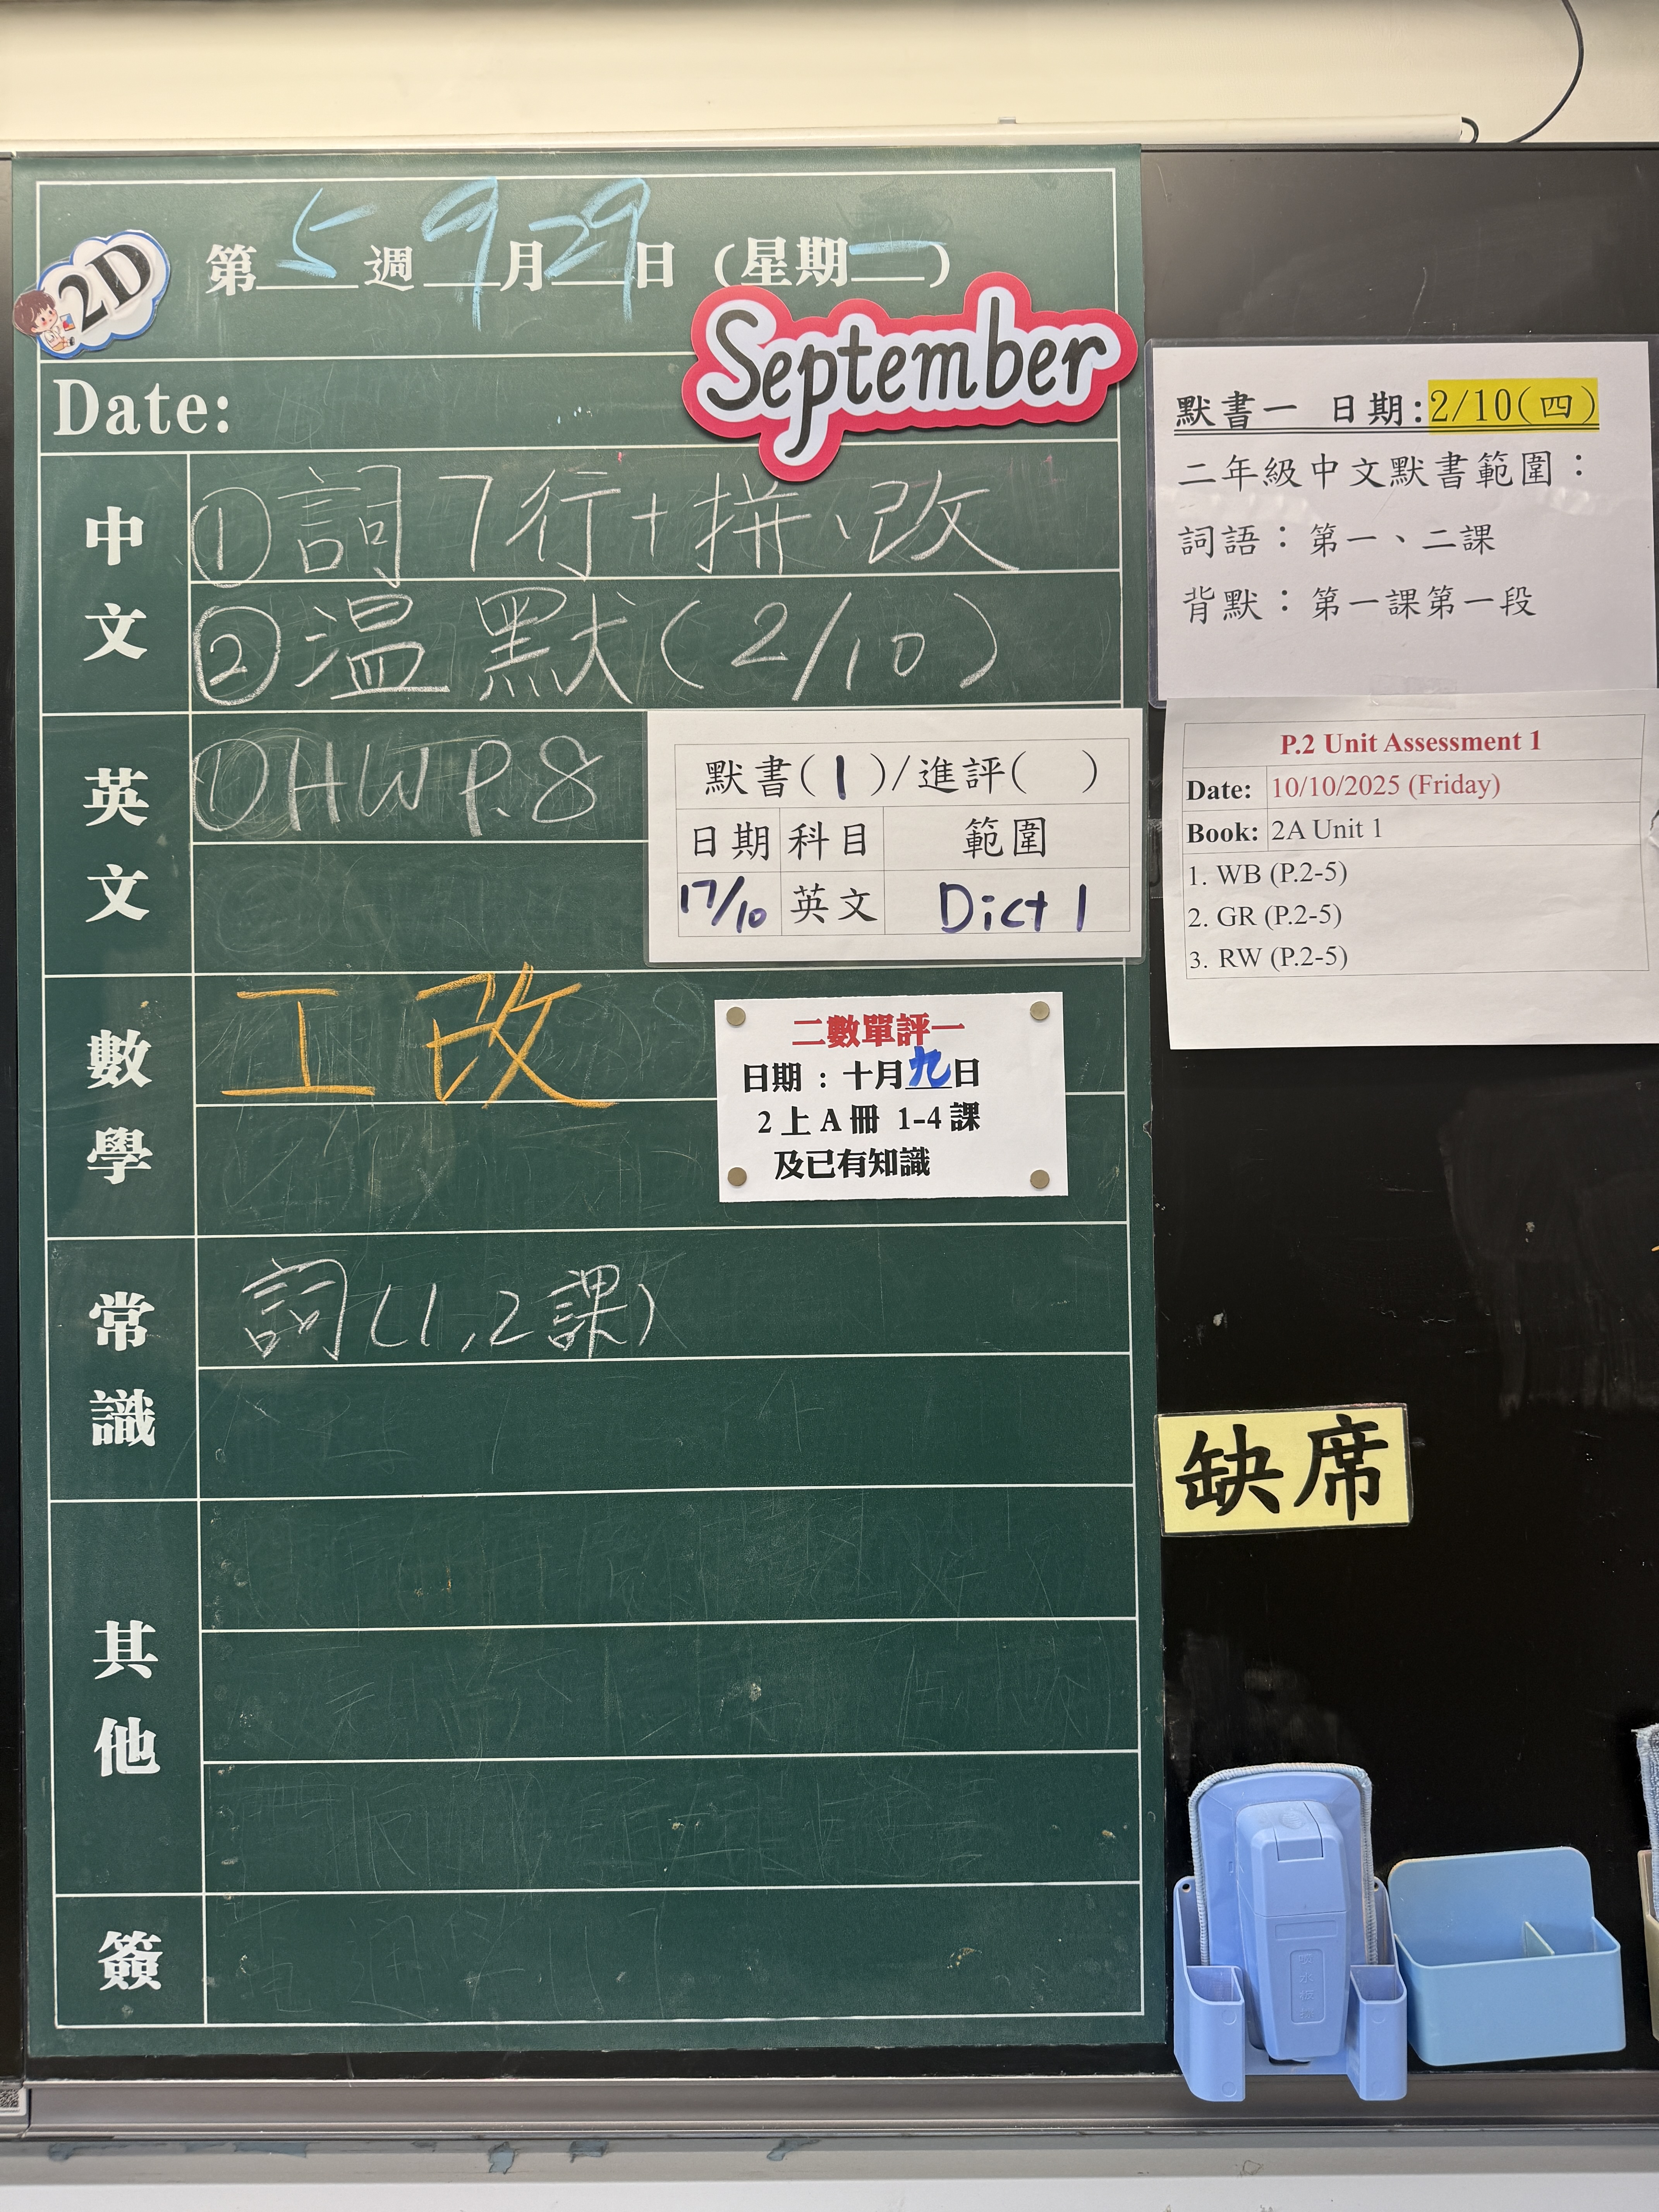 2D
第5週9月29日(星期一)
September
Date:
中文
①詞7行+拼、改
②溫默(2/10)
英文
①HW P.8
默書(1)/進評( )
日期 科目 範圍
17/10 英文 Dict 1
數學
工改
二數單評一
日期：十月九日
2上A冊 1-4課
及已有知識
常識
詞(1,2課)
其他
簽
默書一 日期:2/10(四)
二年級中文默書範圍：
詞語：第一、二課
背默：第一課第一段
P.2 Unit Assessment 1
Date: 10/10/2025 (Friday)
Book: 2A Unit 1
1. WB (P.2-5)
2. GR (P.2-5)
3. RW (P.2-5)
缺席